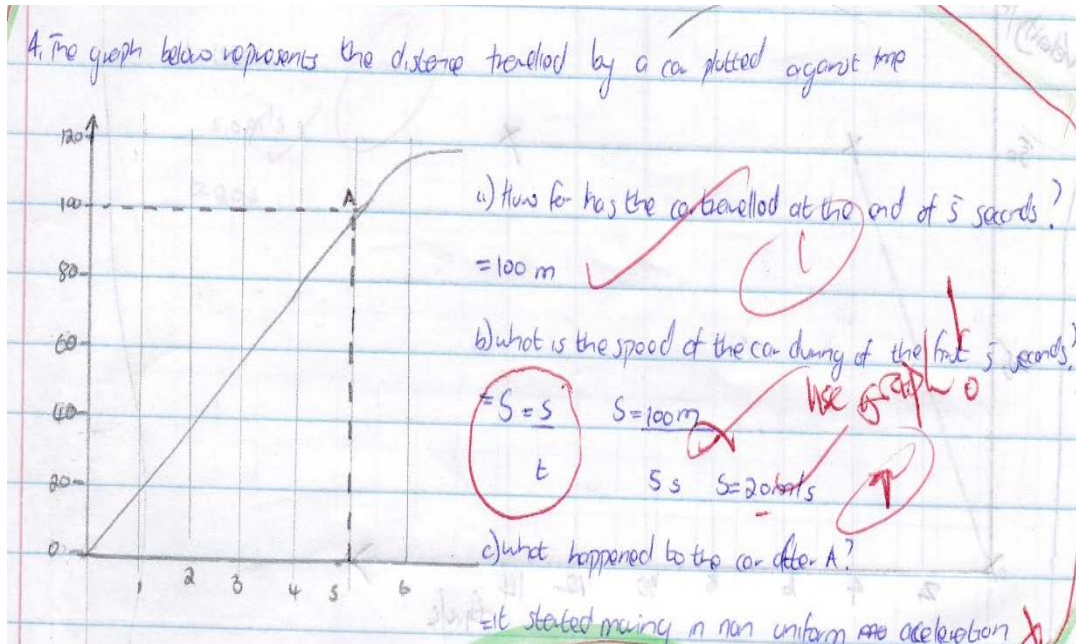 4. The graph below represents the distance travelled by a car plotted against time
120
100
80
60
40
20
0
A
1 2 3 4 5 6
a) How far has the car travelled at the end of 5 seconds?
= 100 m
1
b) what is the speed of the car during of the first 5 seconds?
use graph
= S = s S = 100m
t 5s S = 20m/s
c) what happened to the car after A?
= it started moving in non uniform acceleration